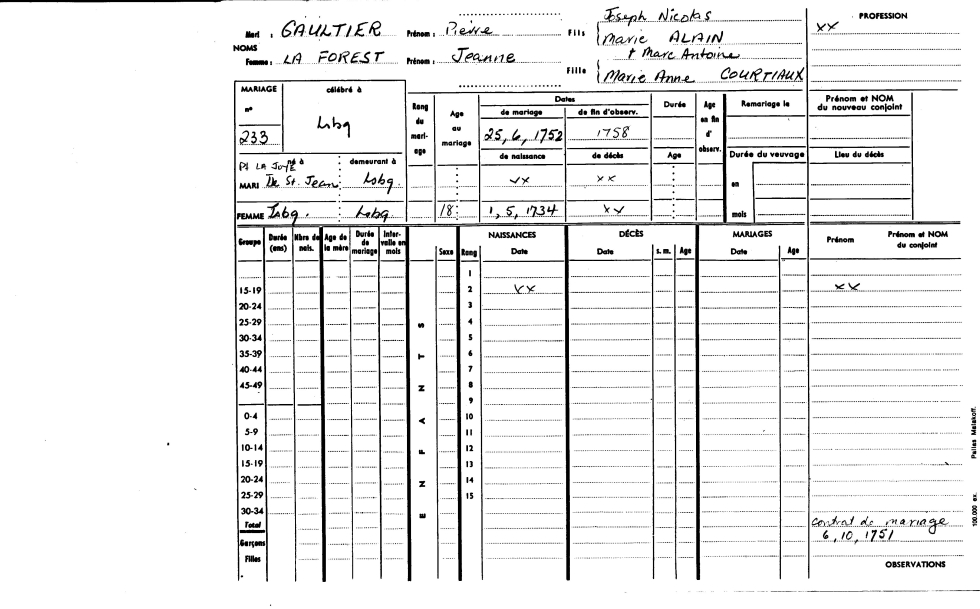 Mari : GAULTIER Prénom : Pierre Fils Joseph Nicolas
Marie ALAIN
NOMS
Femme : LA FOREST Prénom : Jeanne Fille † Marc Antoine
Marie Anne COURTIAUX
PROFESSION
xx
MARIAGE
n°
233
célébré à
Lsbg
Rang du mari- age
Age au mariage
Dates
de mariage de fin d'observ.
25, 6, 1752 1758
de naissance de décès
Durée
Age
Age en fin d' observ.
Remariage le
Durée du veuvage
en
mois
Prénom et NOM du nouveau conjoint
Lieu du décès
né à demeurant à
Pt LA JOYE
MARI De St. Jean Lsbg. xx xx
FEMME Lsbg. Lsbg 18 1, 5, 1734 xx
Groupe Durée (ans) Nbre de nais. Age de la mère Durée de mariage Inter- valle en mois
ENFANTS
Sexe Rang
NAISSANCES
Date
DÉCÈS
Date s. m. Age
MARIAGES
Date Age
Prénom Prénom et NOM du conjoint
1
15-19 2 xx xx
20-24 3
25-29 4
30-34 5
35-39 6
40-44 7
45-49 8
9
0-4 10
5-9 11
10-14 12
15-19 13
20-24 14
25-29 15
30-34
Total
Garçons
Filles
contrat de mariage
6, 10, 1751
OBSERVATIONS
100.000 ex.